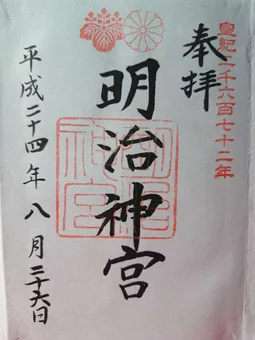 皇紀二千六百七十二年
奉拝
明治神宮
明治神宮
平成二十四年八月二十六日